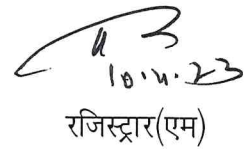 10.4.23
रजिस्ट्रार(एम)